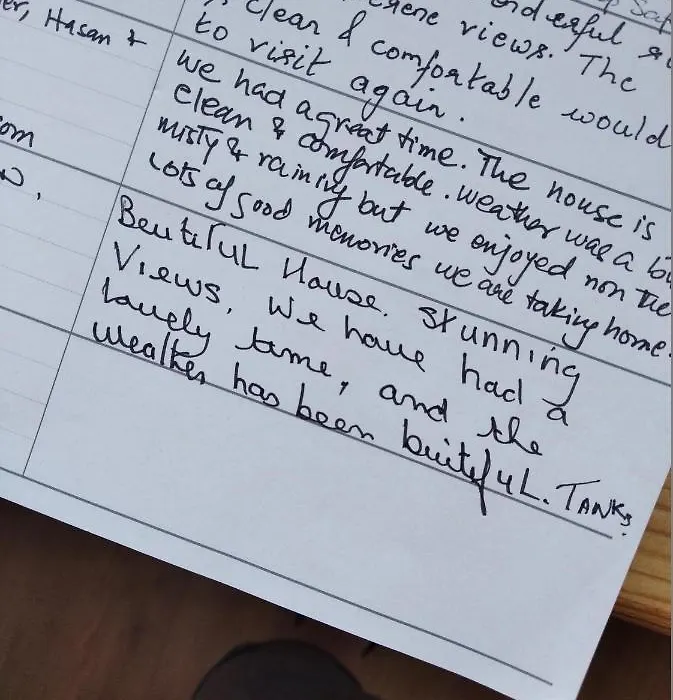 er, Hasan &
om
views. The
clean & comfortable would
to visit again.
we had a great time. The house is
clean & comfortable. Weather was a bi
misty & rainivy but we enjoyed non the
Lots of good memories we are taking home.
BeutifuL House. stunning
Views. We have had a
lovely time, and the
Weather has been buitifuL. TANKS.